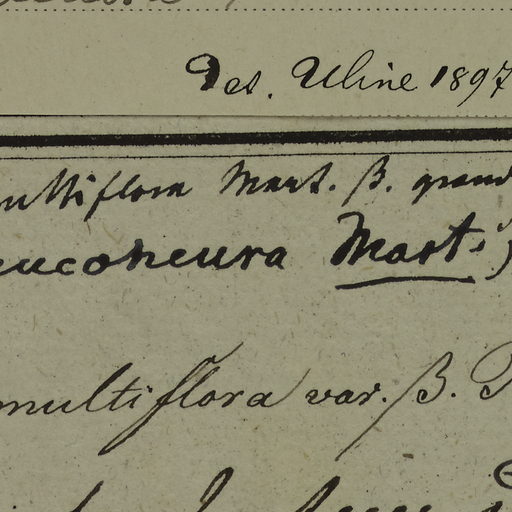 Det. Uline 1897
multiflora Mart. β. grand
euconeura Mart.;
multiflora var. β.